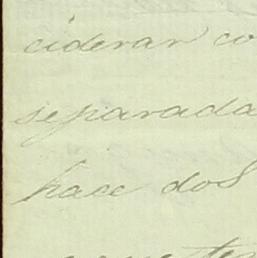 ciderar co
separada
hace dos